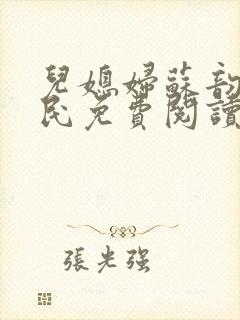 兒媳婦蘇韵
民免費閱讀
張光强